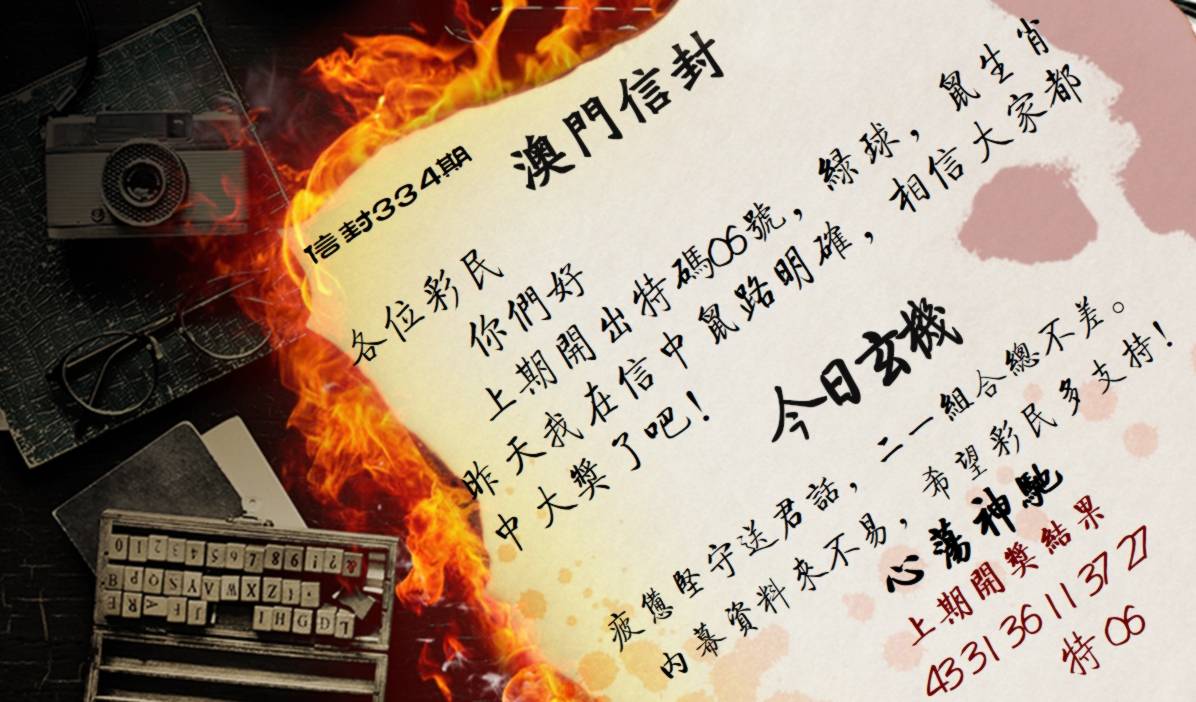 澳門信封
信封334期
各位彩民
你們好
上期開出特碼06號，綠球，鼠生肖
昨天我在信中鼠路明確，相信大家都
中大獎了吧！
今日玄機
疲憊堅守送君話，二一組合總不差。
內幕資料來不易，希望彩民多支持！
心蕩神馳
上期開獎結果
43 31 36 11 37 27
特 06